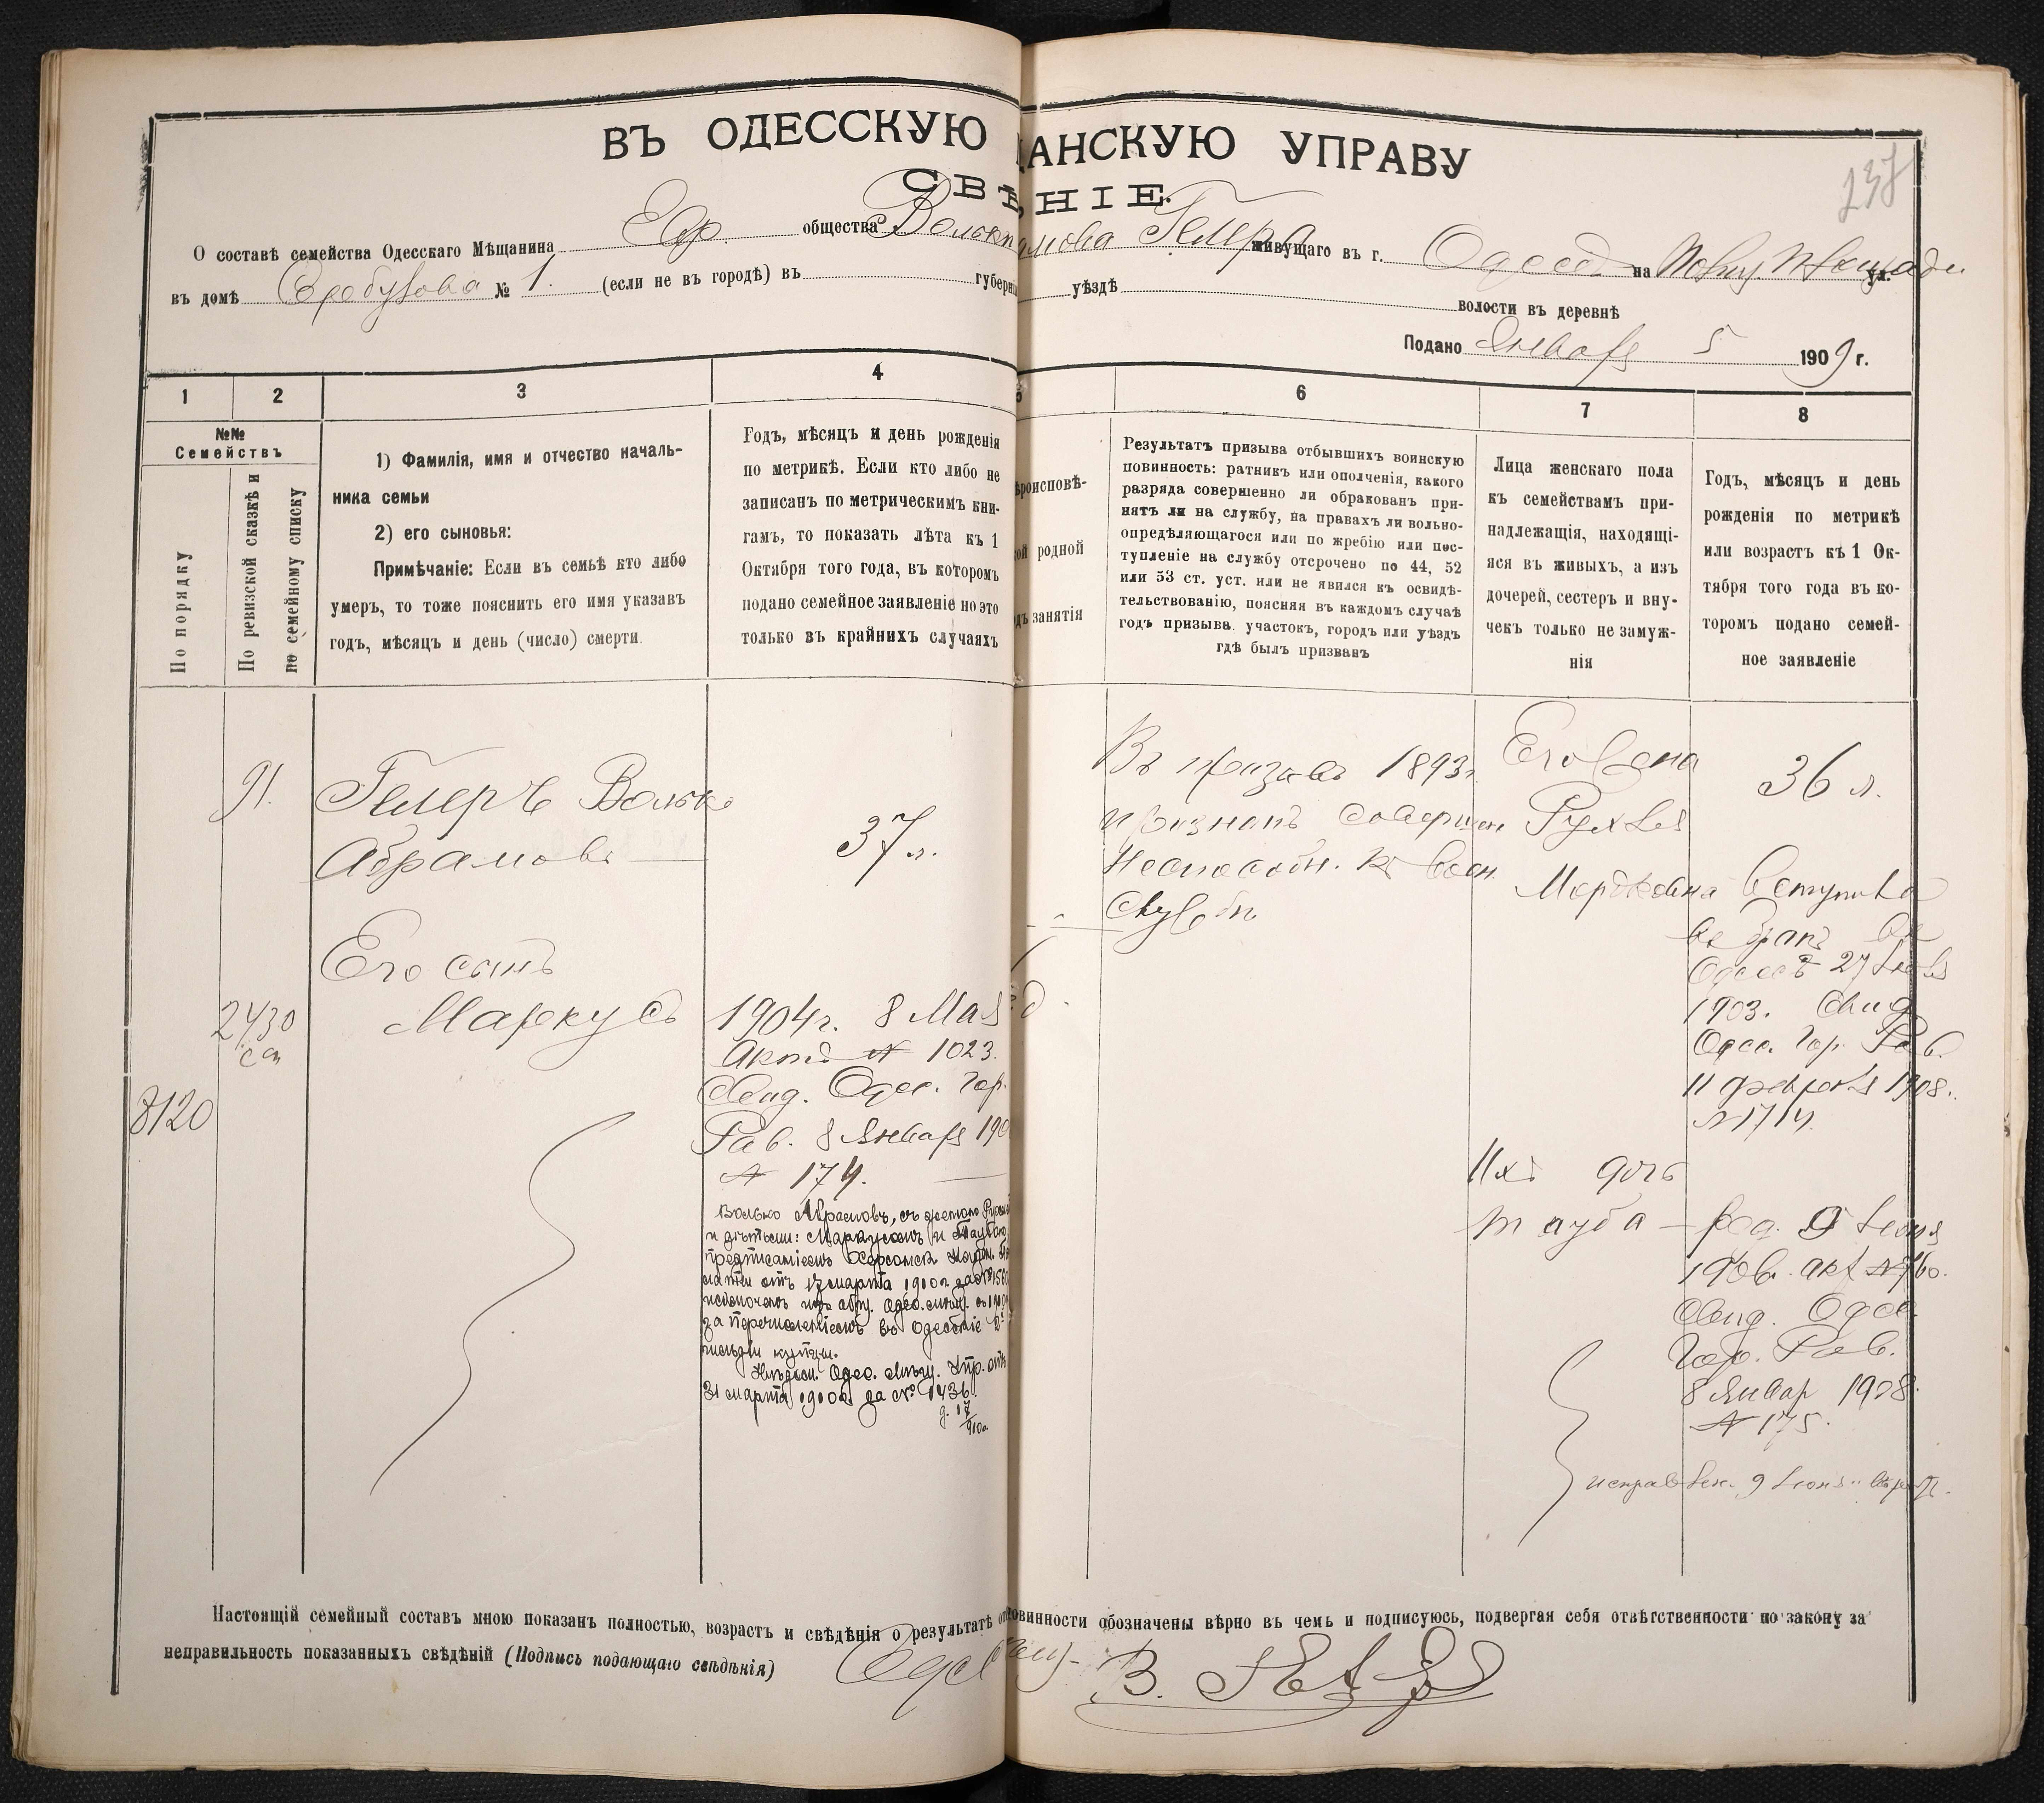 ВЪ ОДЕССКУЮ АНСКУЮ УПРАВУ
СВѢ НІЕ.
237
О составѣ семейства Одесскаго Мѣщанина Евр. общества Волька Абрамова Гелера живущаго въ г. Одессѣ на Площади ул.
въ домѣ № 1. (если не въ городѣ) въ губерні уѣздѣ волости въ деревнѣ
Подано Января 5 1909 г.
1 2 3 4 5 6 7 8
№№
Семействъ
По порядку
По ревизской сказкѣ и
по семейному списку
1) Фамилія, имя и отчество началь-
ника семьи
2) его сыновья:
Примѣчаніе: Если въ семьѣ кто либо
умеръ, то тоже пояснить его имя указавъ
годъ, мѣсяцъ и день (число) смерти.
Годъ, мѣсяцъ и день рожденія
по метрикѣ. Если кто либо не
записанъ по метрическимъ кни-
гамъ, то показать лѣта къ 1
Октября того года, въ которомъ
подано семейное заявленіе но это
только въ крайнихъ случаяхъ
ѣроисповѣ-
ой родной
дъ занятія
Результатъ призыва отбывшихъ воинскую
повинность: ратникъ или ополченія, какого
разряда совершенно ли обракованъ при-
нятъ ли на службу, на правахъ ли вольно-
опредѣляющагося или по жребію или пос-
тупленіе на службу отсрочено по 44, 52
или 53 ст. уст. или не явился къ освидѣ-
тельствованію, поясняя въ каждомъ случаѣ
годъ призыва. участокъ, городъ или уѣздъ
гдѣ былъ призванъ
Лица женскаго пола
къ семействамъ при-
надлежащія, находящі-
яся въ живыхъ, а изъ
дочерей, сестеръ и вну-
чекъ только не замуж-
нія
Годъ, мѣсяцъ и день
рожденія по метрикѣ
или возрастъ къ 1 Ок-
тября того года въ ко-
торомъ подано семей-
ное заявленіе
91.
Гелеръ Волько
Абрамовъ
37 л.
Его сынъ
Маркусъ
2430
8120
1904 г. 8 Мая
Актъ № 1023.
Свид. Одес. Гор.
Рав. 8 Января 190
№ 174.
Волько Абрамовъ, съ женою Рухлей
и дѣтьми: Маркусомъ и Таубою,
предписаніемъ Херсонск. Казен.
латы отъ 17 марта 1910 г. за №
исключенъ изъ общ. Одес. мѣщ. съ
за перечисленіемъ въ Одесскіе 2
гильдіи купцы.
Одес. Мѣщ. Упр. отъ
31 марта 1910 г. за № 1436.
Въ призывъ 1893 г.
признанъ совершен
неспособн. къ воен.
службѣ
Его жена
Рухля
Мордковна
36 л.
вступила
въ бракъ въ
Одессѣ 27
1903. Свид.
Одес. Гор. Рав.
11 февраля 1908.
№ 1714.
Ихъ дочь
Тауба — род. 9
1906 г. акт № 760.
Свид. Одес.
Гор. Рав.
8 Январ 1908.
№ 175.
Настоящій семейный составъ мною показанъ полностью, возрастъ и свѣдѣнія о результатѣ от повинности обозначены вѣрно въ чемъ и подписуюсь, подвергая себя отвѣтственности по закону за
неправильность показанныхъ свѣдѣній (Подпись подающаго свѣдѣнія)